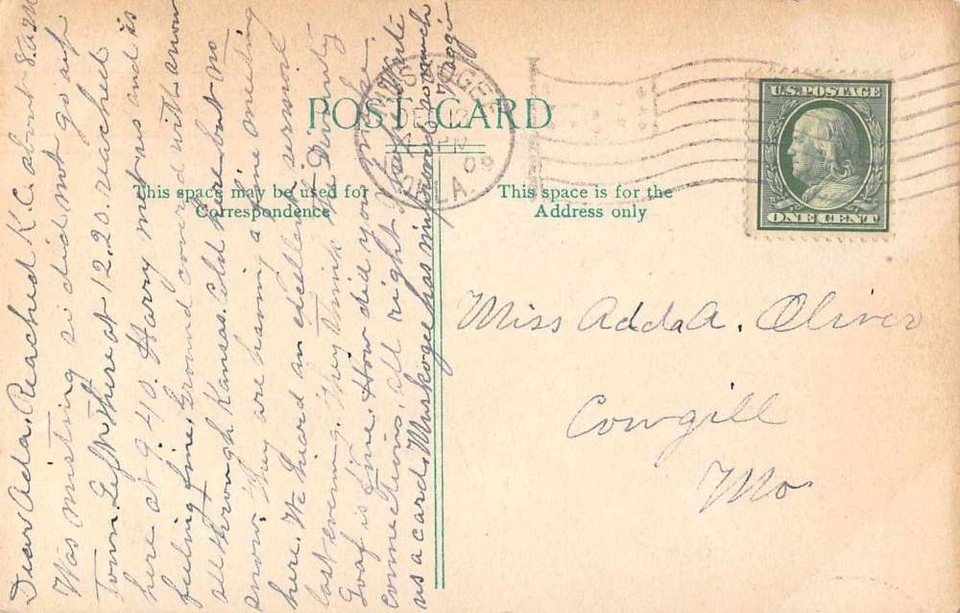 POST CARD
This space may be used for
Correspondence
This space is for the
Address only
U.S. POSTAGE
ONE CENT
MUSKOGEE
DEC 12
PM
09
OKLA.
Miss Adda A. Oliver
Cowgill
Mo
Dear Ada. Reached K.C. about 8 a.m
Was misting so did not go up
Town. Left there at 12.20. reached
here at 9.40. Harry met us and is
feeling fine. Ground covered with snow
all through Kansas. Cold here but no
snow. They are having a fine meeting
here. We heard an excellent sermon
last evening. They think the Dwenty
Graf is fine. How did you make
connections, all right? Write
us a card. Muskogee has improved so much
Maggie